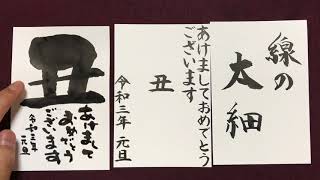 丑
あけまして
おめでとう
ございます
令和三年
元旦
あけましておめでとう
ございます
丑
令和三年 元旦
線の
太細